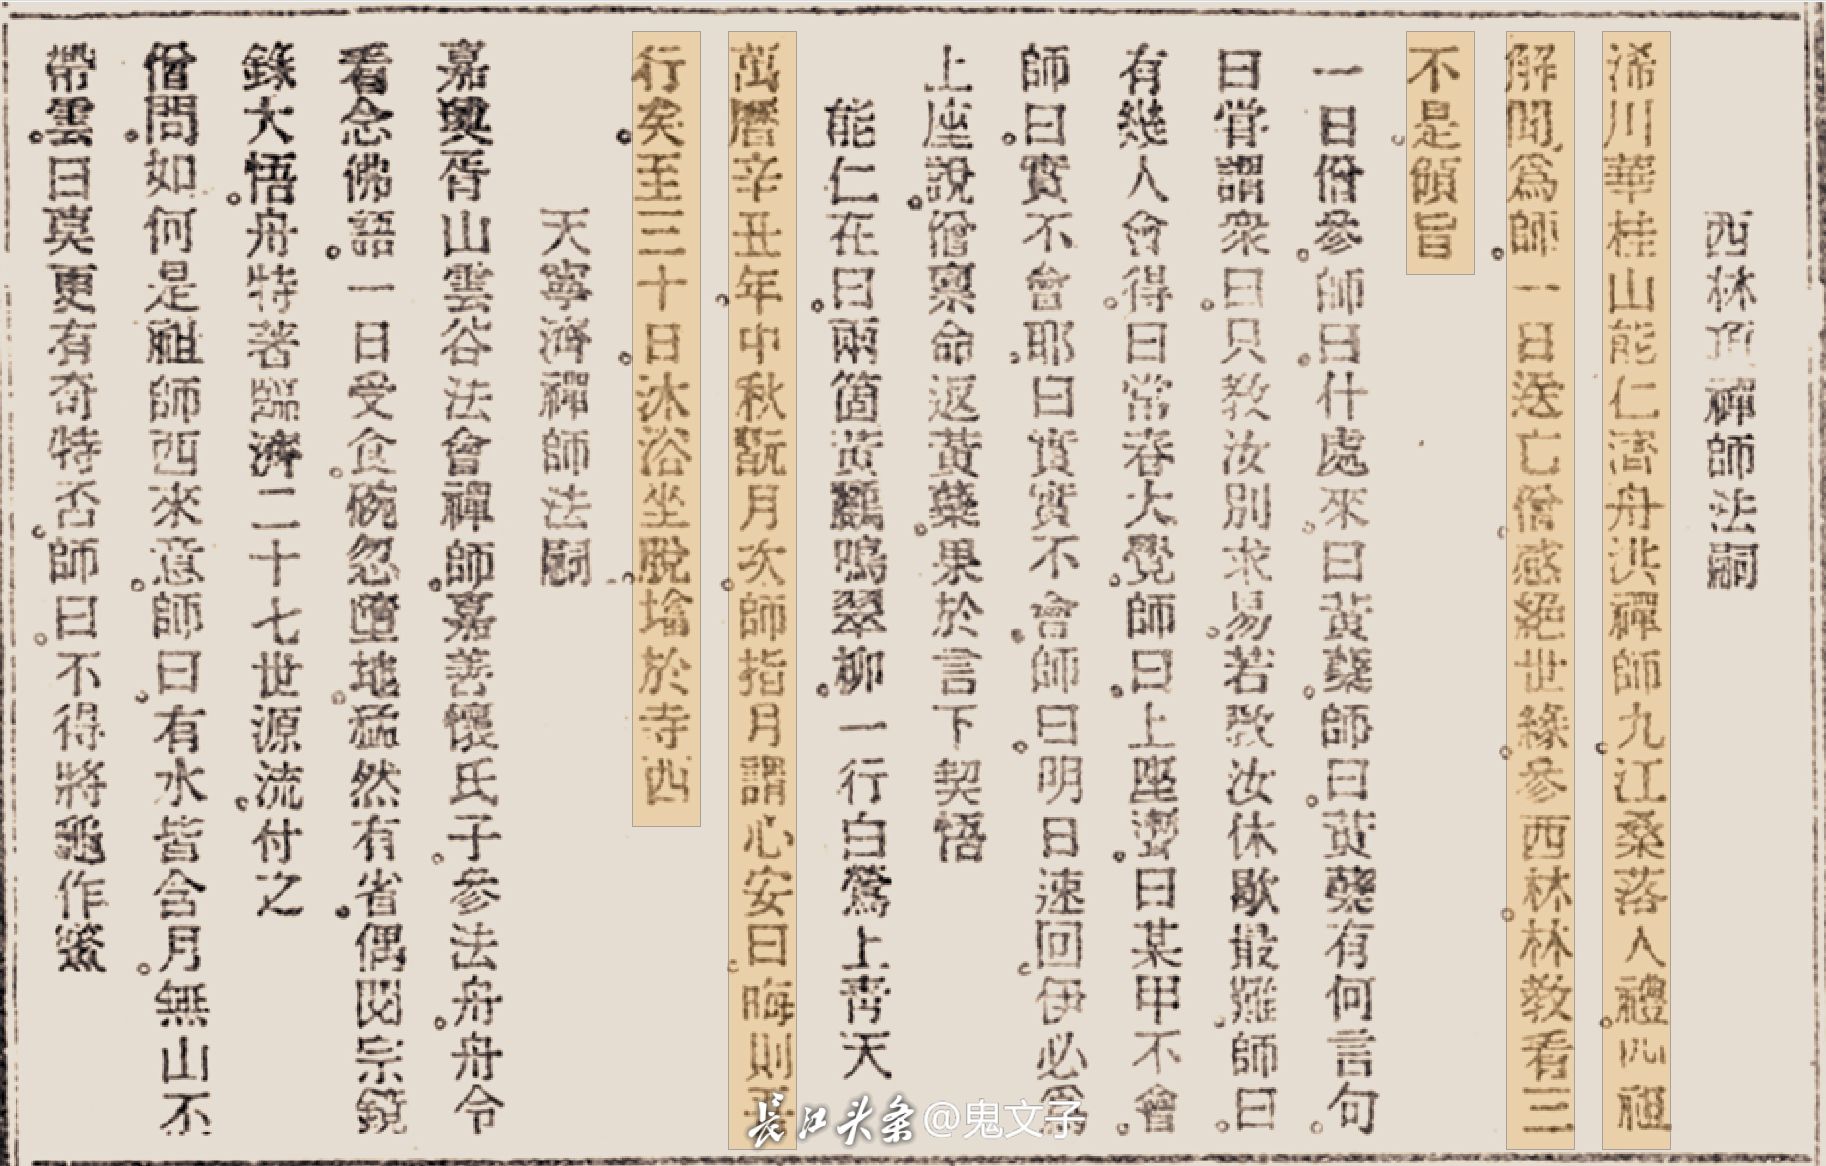 西林頂禪師法嗣
浠川華桂山能仁濟舟洪禪師九江桑落人禮四祖
解聞爲師一日送亡僧感絕世緣參西林林教看三
不是領旨
一日僧參師曰什處來曰黃蘗師曰黃蘗有何言句
曰嘗謂衆曰只教汝別求易若教汝休歇最難師曰
有幾人會得曰常春大覺師曰上座聻曰某甲不會
師曰實不會耶曰實實不會師曰明日速回伊必爲
上座說僧稟命返黃蘗果於言下契悟
能仁在曰兩箇黃鸝鳴翠柳一行白鷺上青天
萬曆辛丑年中秋翫月次師指月謂心安曰晦則吾
行矣至三十日沐浴坐脫塔於寺西
天寧濟禪師法嗣
嘉興胥山雲谷法會禪師嘉善懷氏子參法舟舟令
看念佛語一日受食碗忽墮地猛然有省偶閱宗鏡
錄大悟舟特著臨濟二十七世源流付之
僧問如何是祖師西來意師曰有水皆含月無山不
帶雲曰莫更有奇特否師曰不得將龜作鱉
长江头条@鬼文子